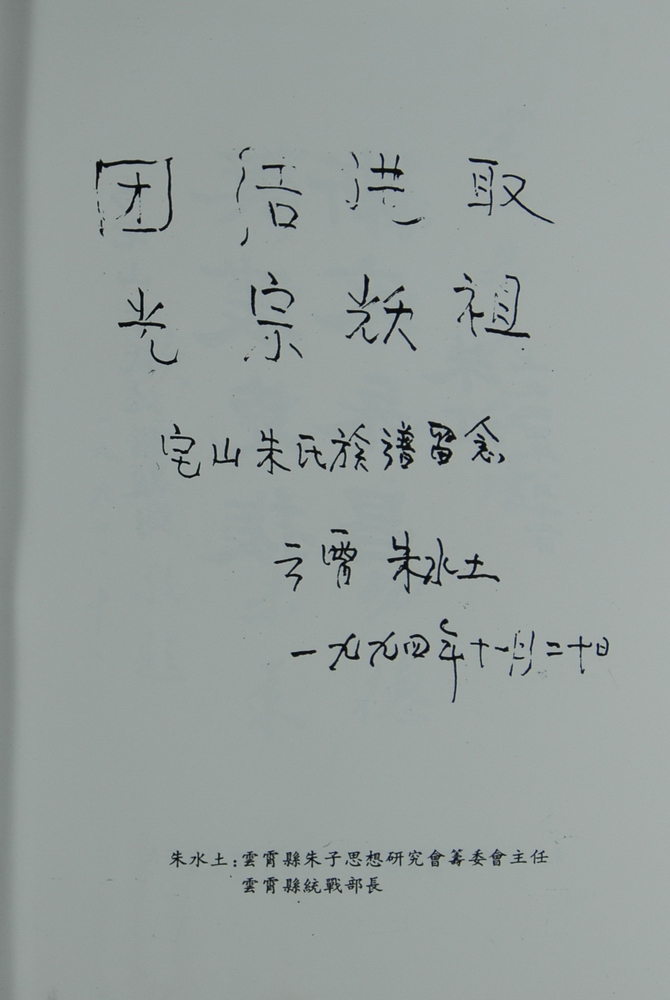 团洁进取
光宗耀祖
宅山朱氏族谱留念
云霄 朱水土
一九九四年十一月二十日
朱水土：雲霄縣朱子思想研究會籌委會主任
雲霄縣統戰部長